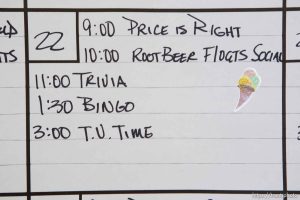 22
9:00 PRICE IS RIGHT
10:00 ROOTBEER FLOATS SOCIAL
11:00 TRIVIA
1:30 BINGO
3:00 T.V. TIME